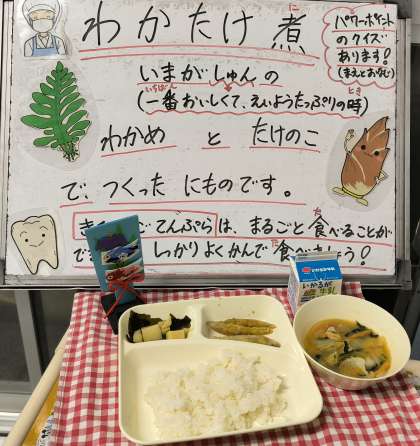 わかたけ煮
に
パワーポケット
のクイズ
あります!
(まえとおなじ)
いまがしゅんの
いちばん
とき
(一番おいしくて、えいようたっぷりの時)
わかめ と たけのこ
で、つくった にものです。
てんぷら は、まるごと食べることが
た
しっかりよくかんで 食べましょう!
た
いかるが
牛乳